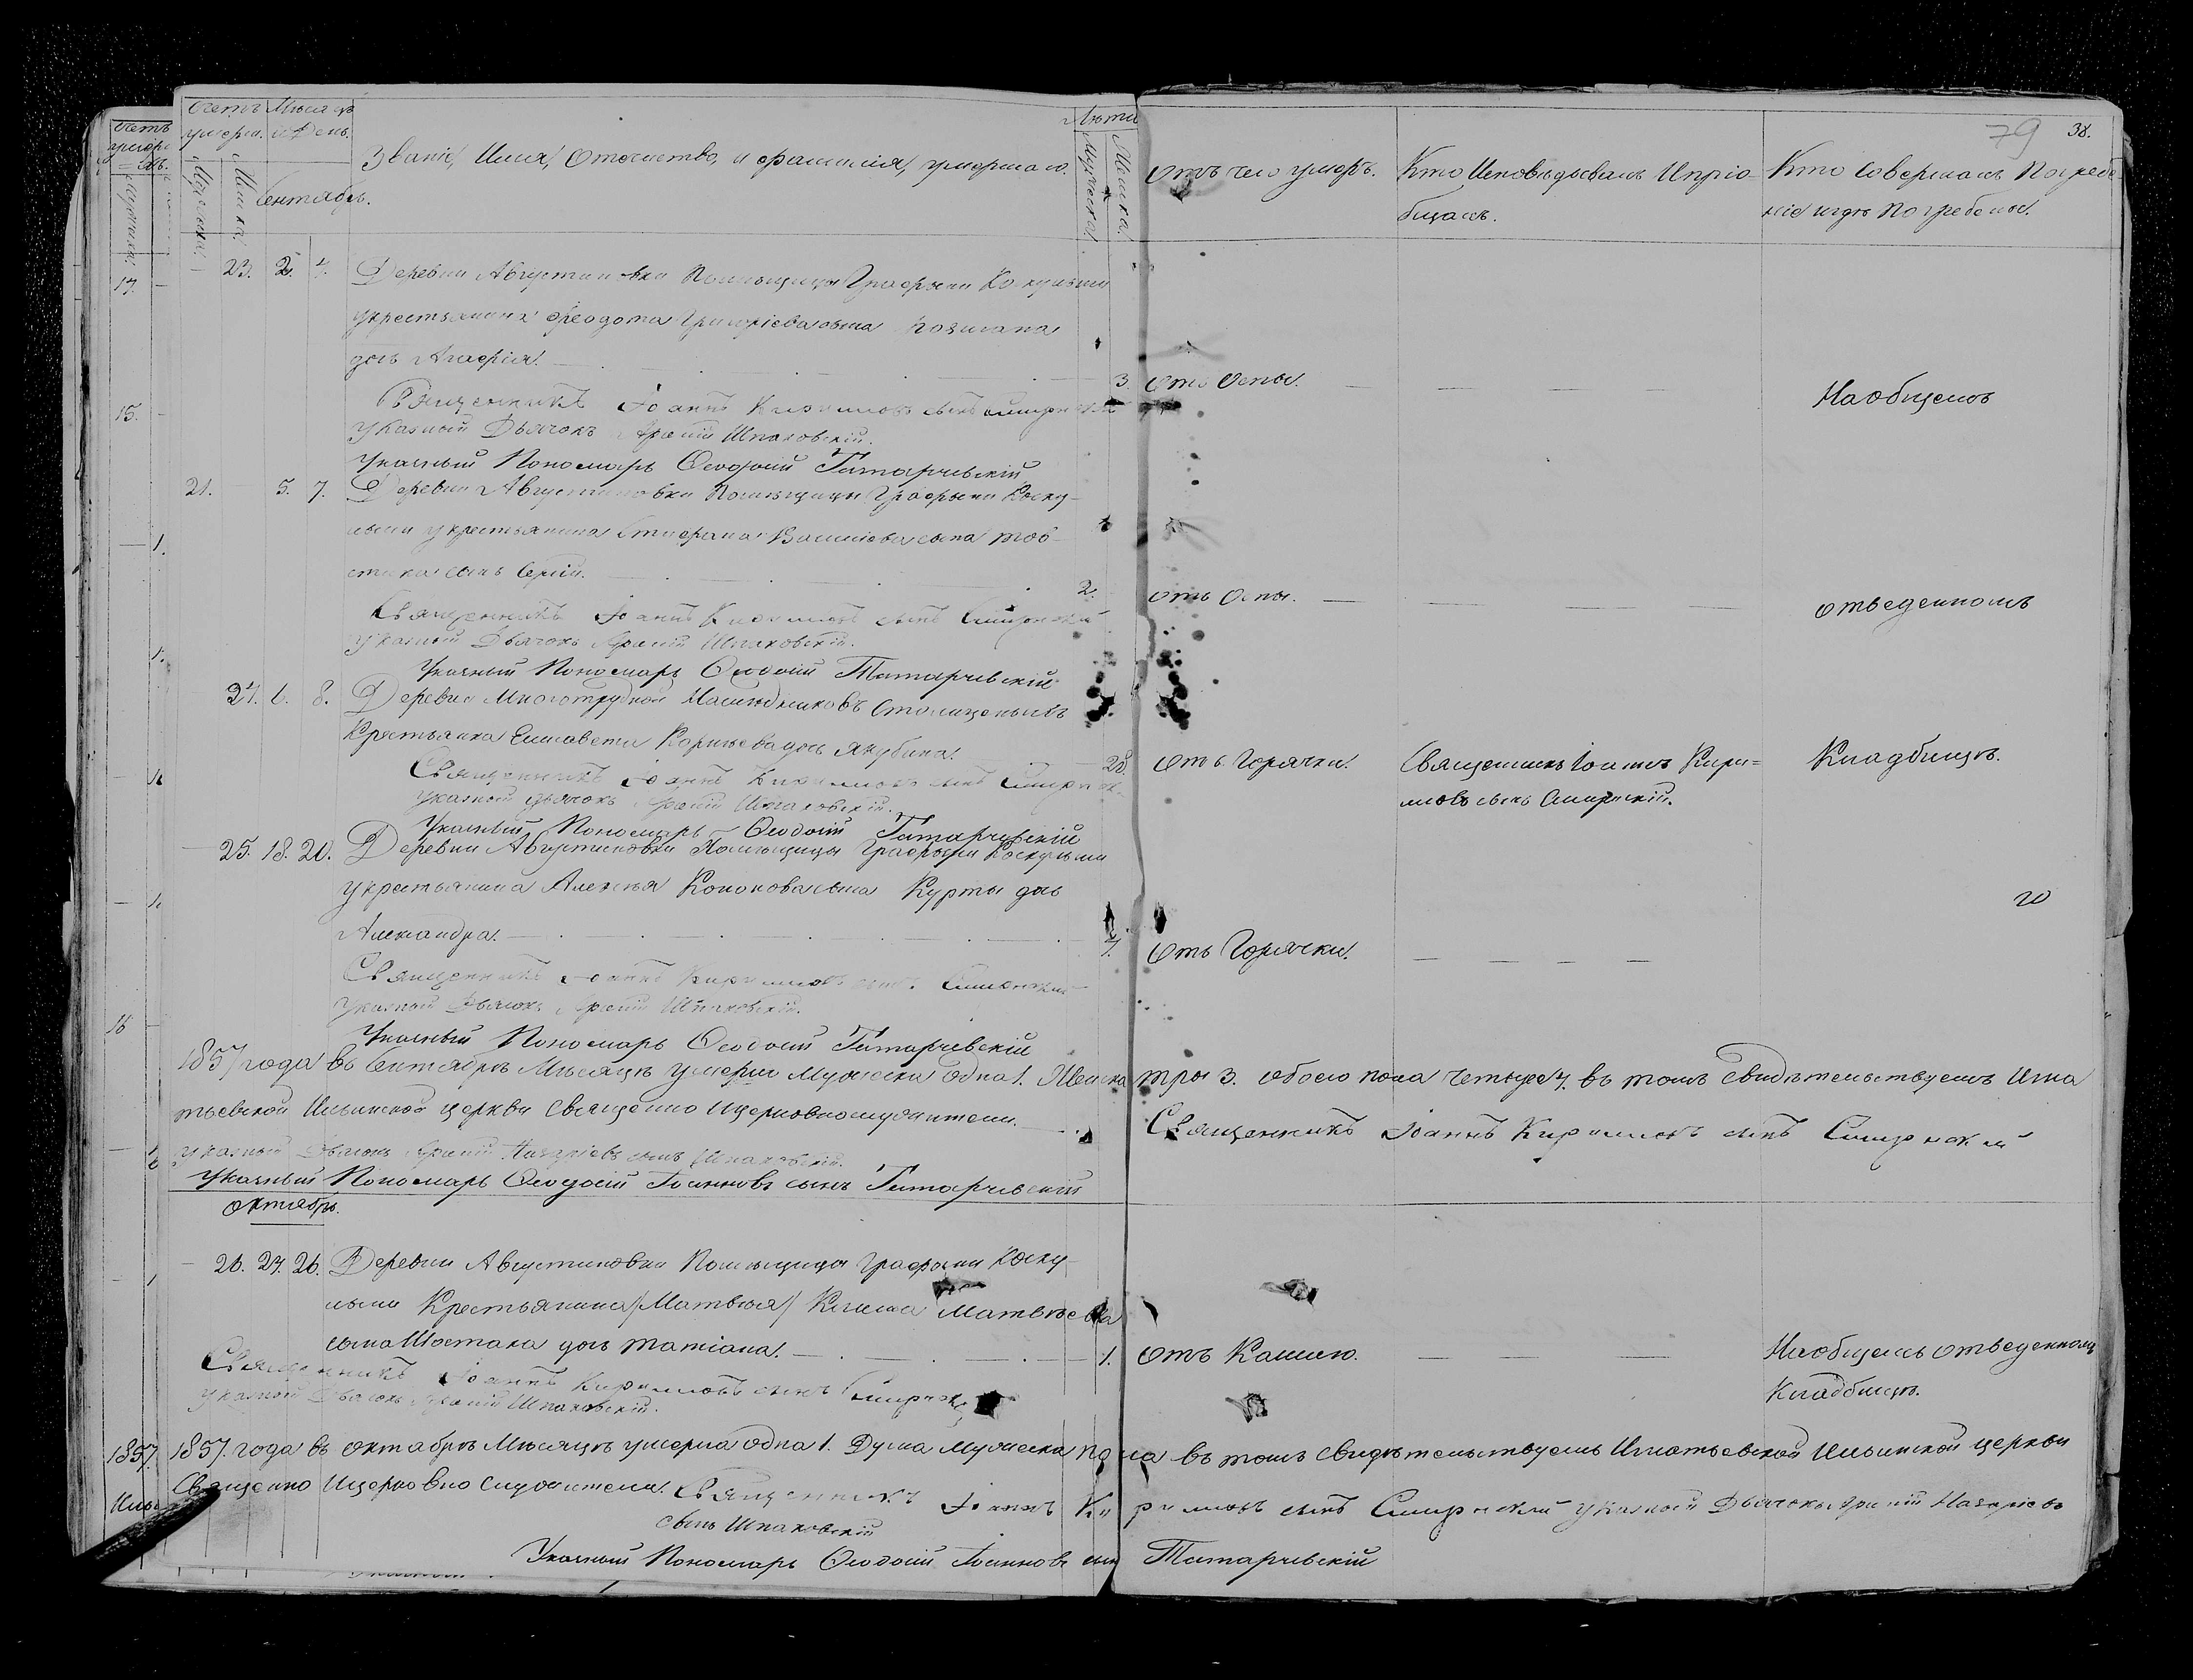 Счетъ умерш. Мѣсяцъ и День.
Званіе, Имя, Отечество, и фамилія, умершаго.
Лѣта
Мужеска Женска
Сентябрь.
Отъ чего умеръ.
Кто Исповѣдывалъ И пріобщалъ.
Кто Совершалъ Погребеніе и гдѣ Погребены.
79 38.
23. 2. 4. Деревни Августиновки Помѣщицы Графыни
у крестьянина Феодота Григоріева сына
дочь Агафія.
3. Отъ Оспы.
На общемъ
Священникъ Іоаннъ Кириловъ сынъ Смирнскій
Указный Дьячокъ Шпаковскій.
Указный Пономарь Ѳеодосій Татарчевскій
21. 5. 7. Деревни Августиновки Помѣщицы Графыни Коску-
льши у крестьянина Стефана Василіева сына Тов-
стика сынъ Сергій.
2. отъ Оспы.
отведенномъ
Священникъ Іоаннъ Кириловъ сынъ Смирнскій
Указный Дьячокъ Шпаковскій.
Указный Пономарь Ѳеодосій Татарчевскій
24. 6. 8. Деревни Многотрудной Наслѣдниковъ
Крестьянка Елисавета Корнѣева дочь Якубина.
28. Отъ Горячки.
Священникъ Іоаннъ Кири=
ловъ сынъ Смирнскій.
Кладбищѣ.
Священникъ Іоаннъ Кириловъ сынъ
Указный Дьячокъ Шпаковскій.
Указный Пономарь Ѳеодосій Татарчевскій
25. 18. 20. Деревни Августиновки Помѣщицы Графыни Коскульши
у крестьянина Алексѣя Кононова сына Курты дочь
Александра.
7. Отъ Горячки.
Священникъ Іоаннъ Кириловъ сынъ Смирнскій
Указный Дьячокъ Шпаковскій.
Указный Пономарь Ѳеодосій Татарчевскій
1857 года въ Сентябрѣ Мѣсяцѣ умерло Мужеска одна 1. Женска три 3. обоего пола четыре 4. въ томъ свидѣтельствуемъ Игна
тьевской Ильинской церкви Священно И церковнослужители.
Священникъ Іоаннъ Кириловъ сынъ Смирнскій
Указный Дьячокъ Назаріевъ сынъ Шпаковскій.
Указный Пономарь Ѳеодосій Іоанновъ сынъ Татарчевскій
Октябрь.
26. 24. 26. Деревни Августиновки Помѣщицы Графыни Коску-
льши Крестьянина /Матвѣя/ Клима Матвѣева
сына Шостака дочь Татіана.
1. Отъ Кашлю.
На общемъ отведенномъ
Кладбищѣ.
Священникъ Іоаннъ Кириловъ сынъ
Указный Дьячокъ Шпаковскій.
1857. года въ октябрѣ Мѣсяцѣ умерла одна 1. Душа Мужеска пола въ томъ свидѣтельствуемъ Игнатьевской Ильинской церкви
Священно И церковно служители. Священникъ Іоаннъ Кириловъ сынъ Смирнскій Указный Дьячокъ Назаріевъ
сынъ Шпаковскій
Указный Пономарь Ѳеодосій Іоанновъ сын Татарчевскій